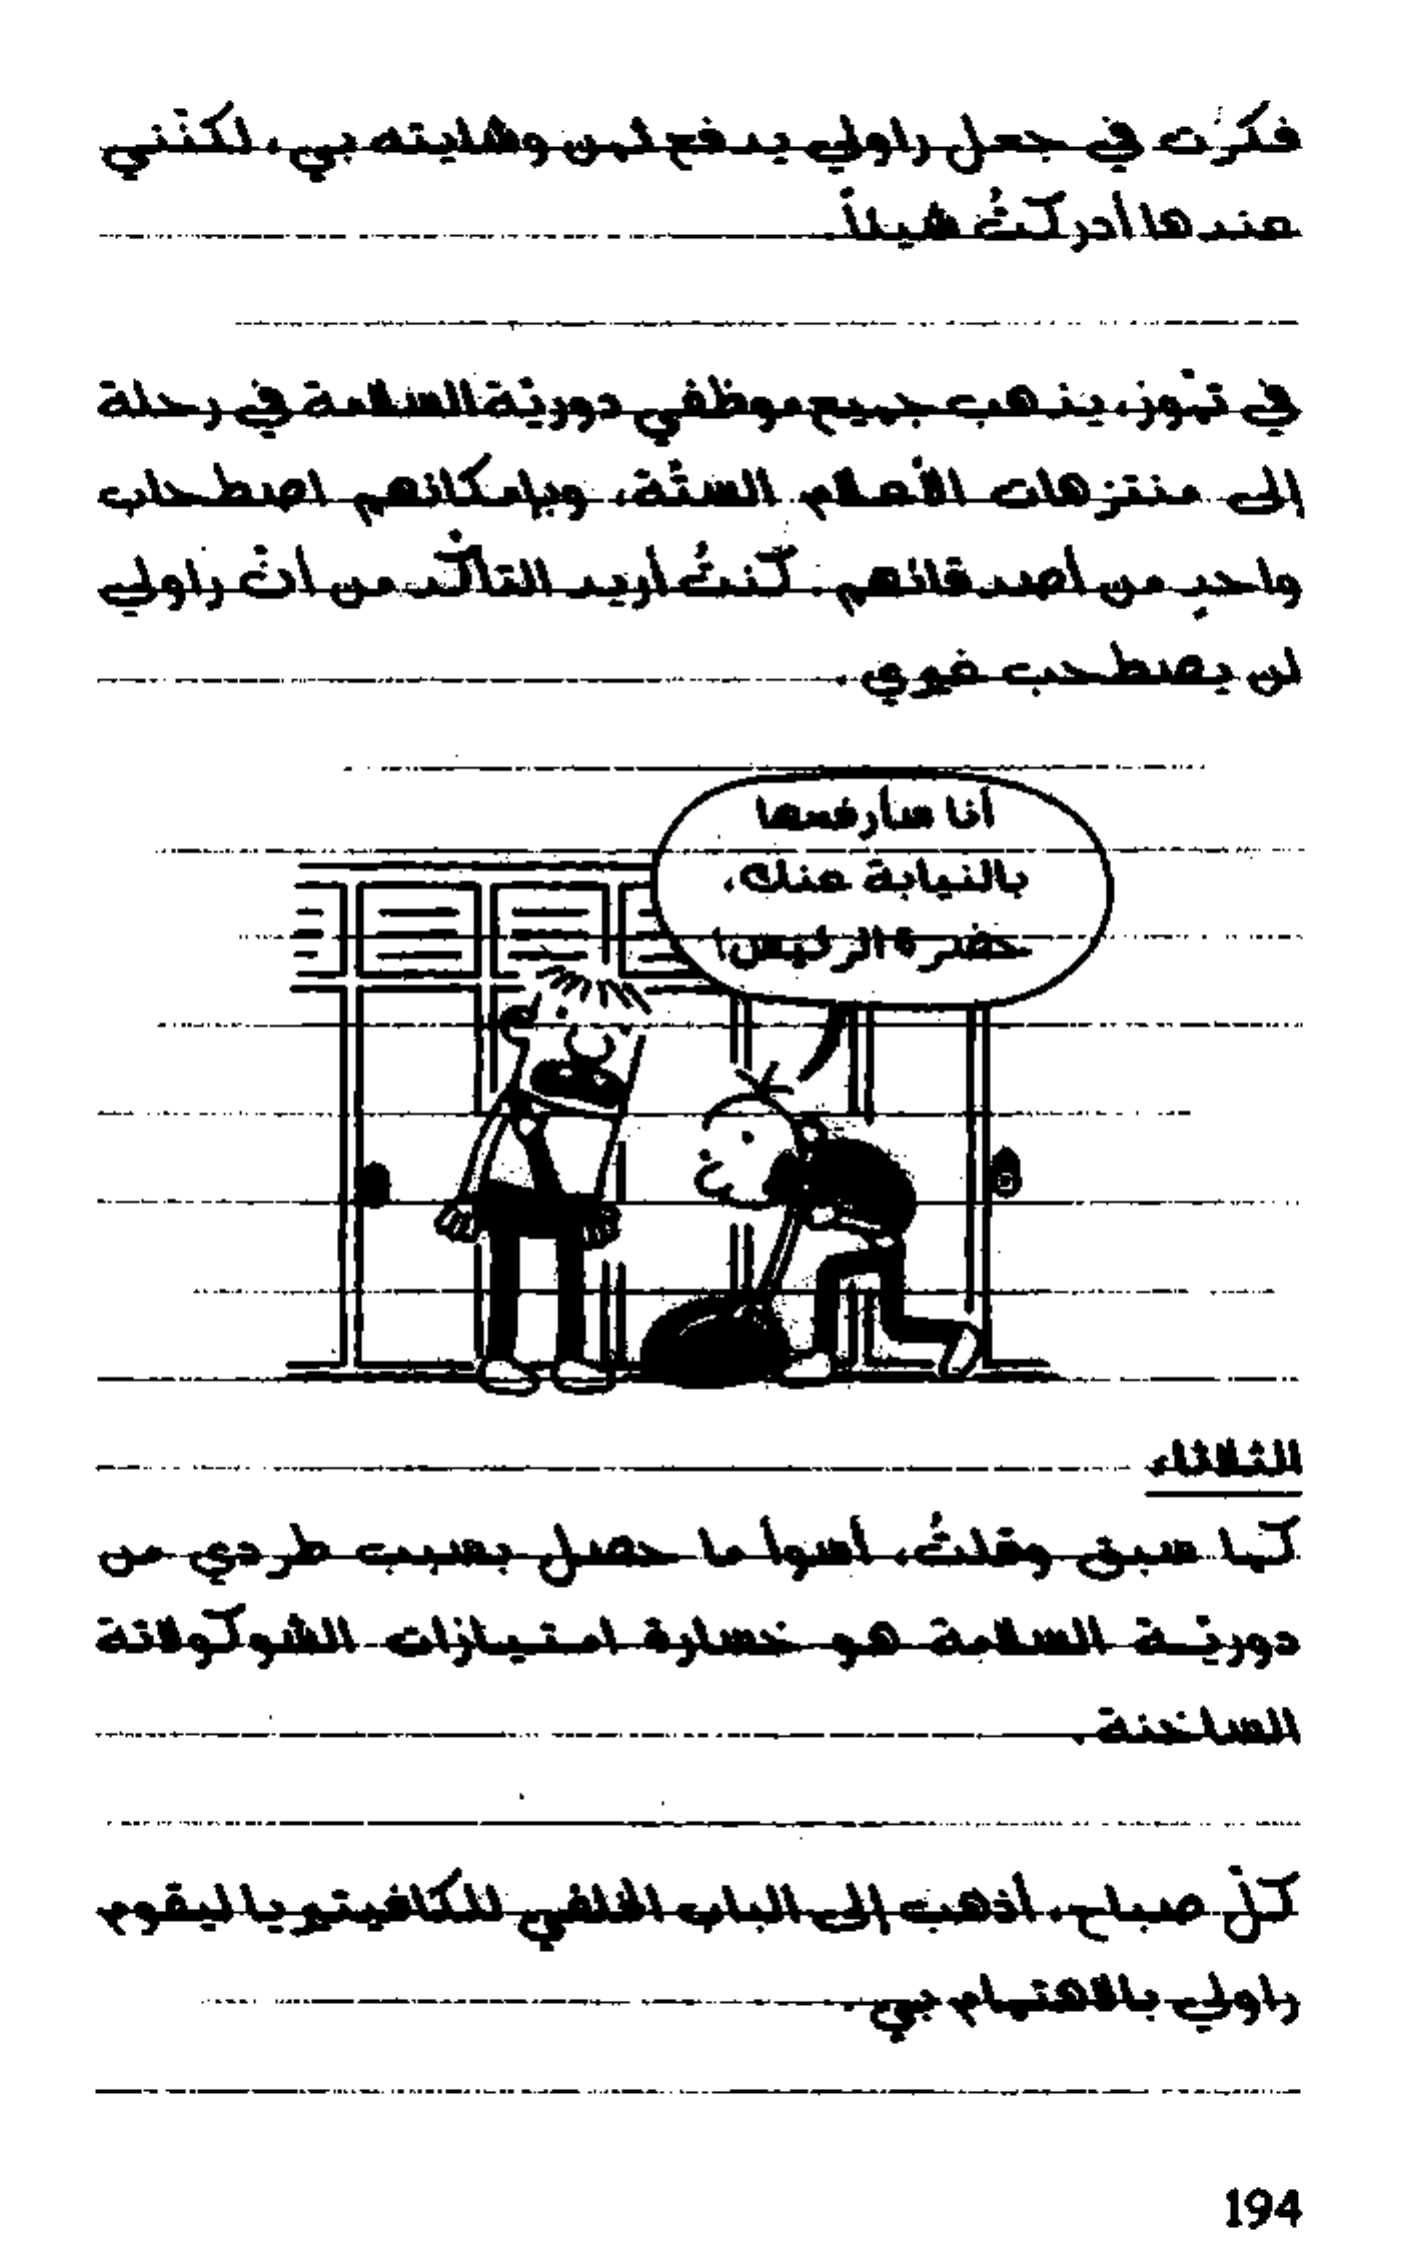 فكرّت في جعل راولي يدفع ثمن وشايته بي، لكنّني
عندها أدركتُ شيئاً.
في تمّوز، يذهب جميع موظفي دوريّة السلامة في رحلة
إلى منتزهات الأعلام الستّة، وبإمكانهم اصطحاب
واحدٍ من أصدقائهم. كنتُ أريد التأكّد من أنّ راولي
لن يصطحب غيري.
أنا سأرفعها
بالنيابة عنك،
حضرة الرئيس!
الثلاثاء
كما سبق وقلتُ، أسوأ ما حصل بسبب طردي من
دوريّة السلامة هو خسارة امتيازات الشوكولاتة
الساخنة.
كلّ صباح، أذهب إلى الباب الخلفي للكافيتيريا ليقوم
راولي بالاهتمام بي.
194